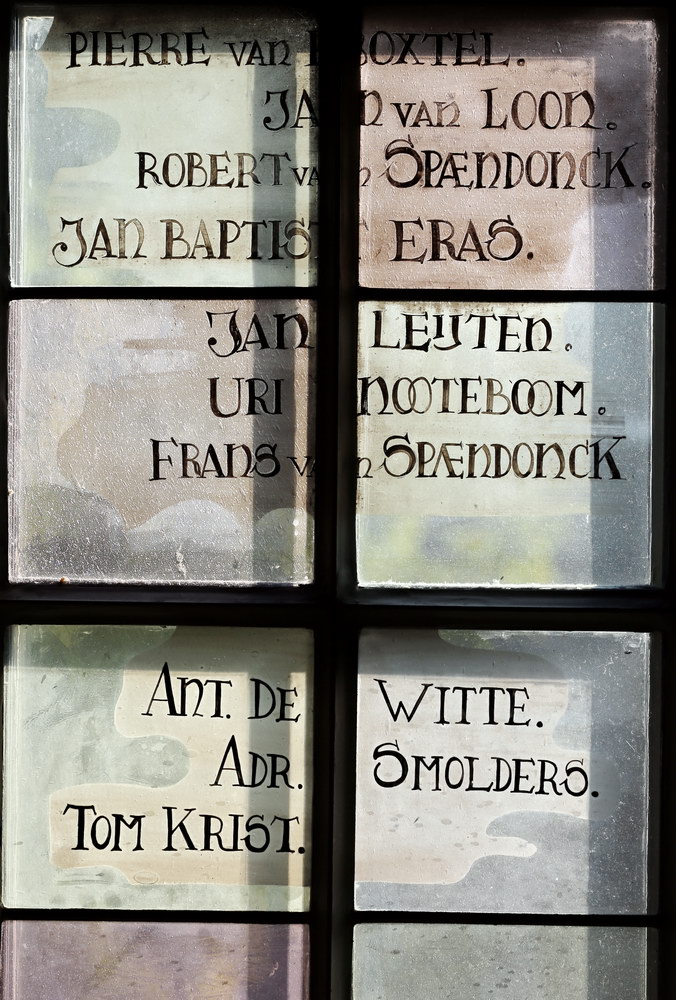 PIERRE van BOXTEL.
JAN van LOON.
ROBERT van SPÆNDONCK.
JAN BAPTIST ERAS.
JAN LEIJTEN.
URI NOOTEBOOM.
FRANS van SPÆNDONCK
ANT. DE WITTE.
ADR. SMOLDERS.
TOM KRIST.